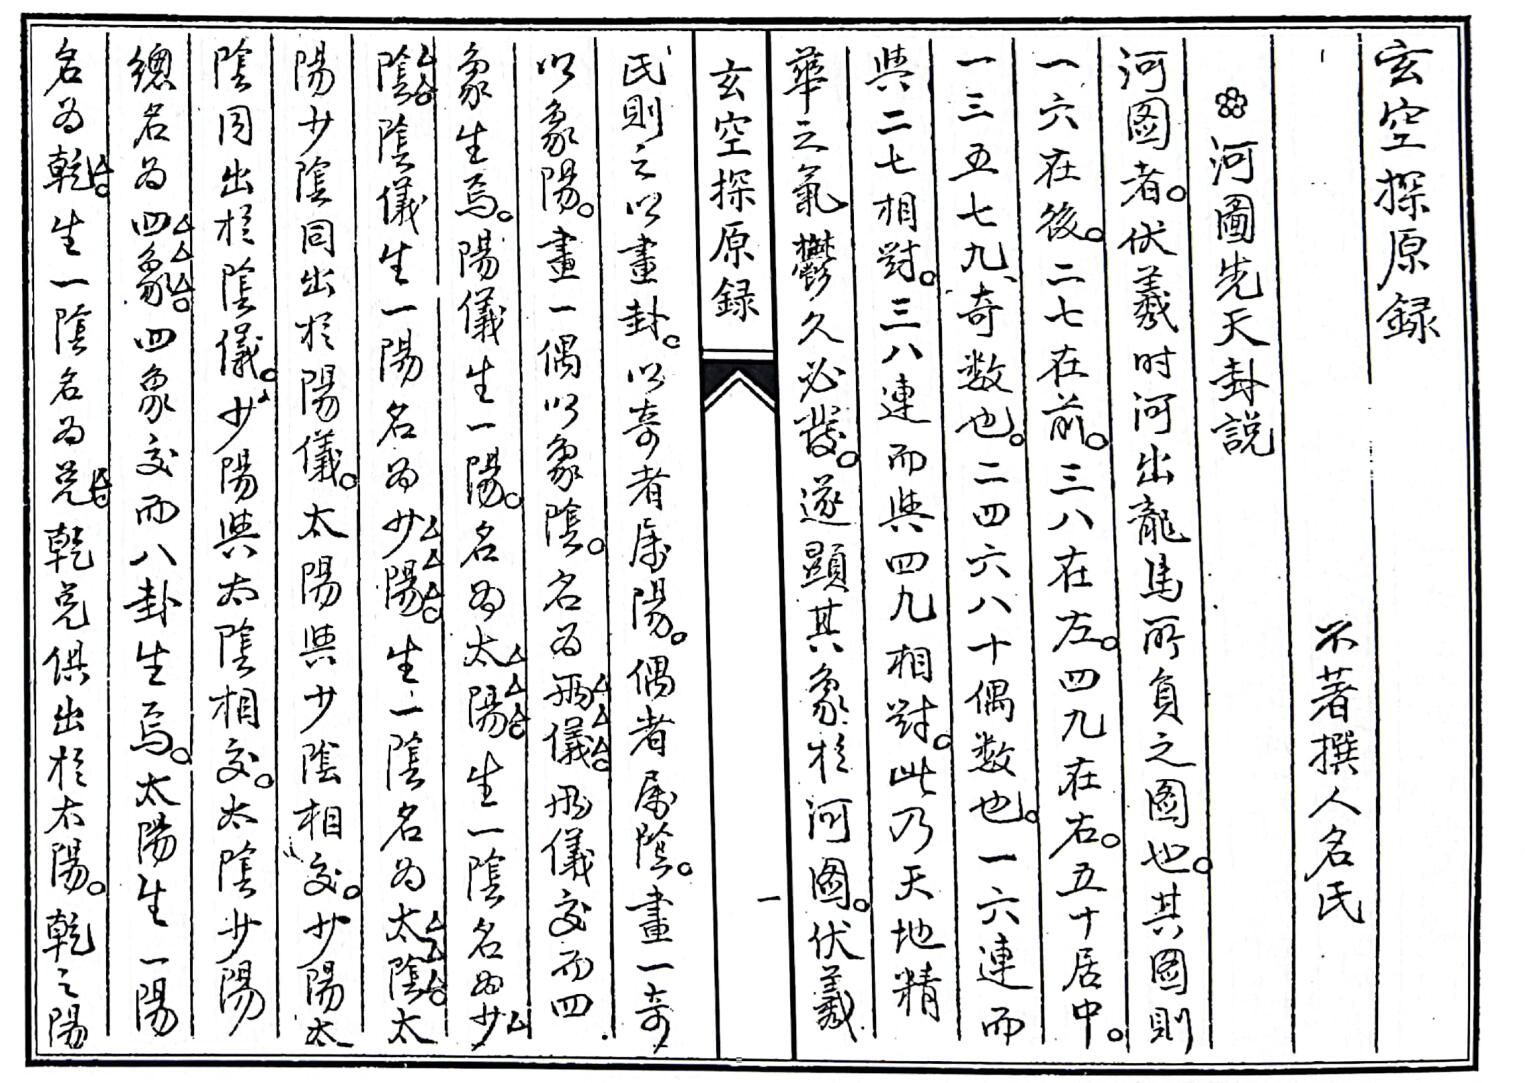 玄空探原録
不著撰人名氏
河圖先天卦説
河図者。伏羲时河出龍馬所負之図也。其図則
一六在後。二七在前。三八在左。四九在右。五十居中。
一三五七九、奇数也。二四六八十偶数也。一六連而
與二七相對。三八連而與四九相對。此乃天地精
華之氣鬱久必發。遂顯其象於河図。伏羲
玄空探原録
一
氏則之以畫卦。以奇者属陽。偶者属陰。畫一奇
以象陽。畫一偶以象陰。名为兩儀兩儀交而四
象生焉。陽儀生一陽。名为太陽。生一陰名为少
陰。陰儀生一陽名为少陽。生一陰名为太陰。太
陽少陰同出於陽儀。太陽與少陰相交。少陽太
陰同出於陰儀。少陽與太陰相交。太陰少陽
總名为四象。四象交而八卦生焉。太陽生一陽
名为乾。生一陰名为兑。乾兑俱出於太陽。乾之陽